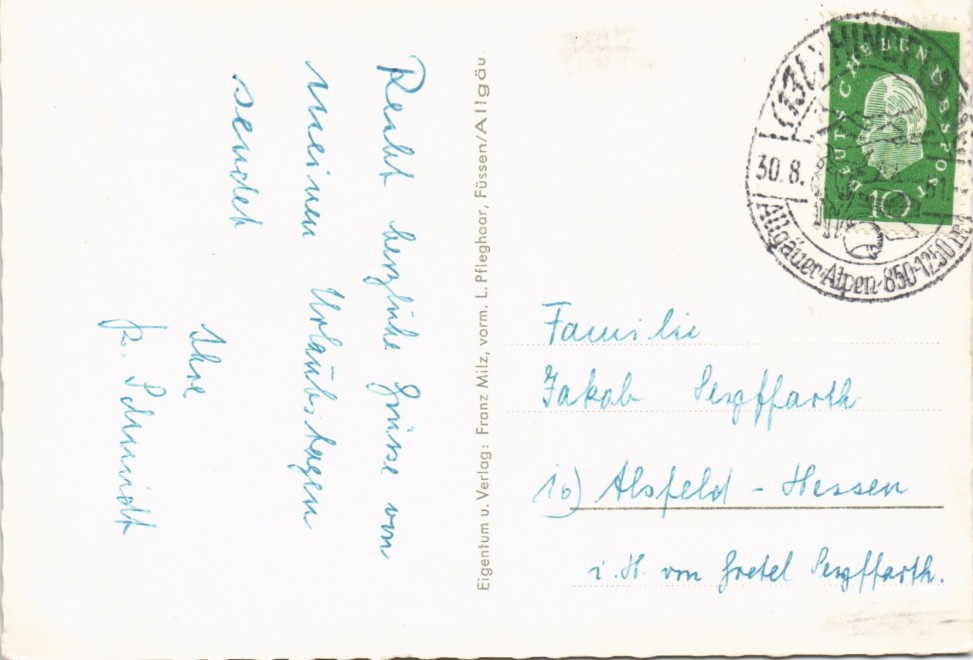 Recht herzliche Grüsse von
meinen Urlaubstagen
sendet
Ihre
Fr. Schmidt
Eigentum u. Verlag: Franz Milz, vorm. L. Pfleghaar, Füssen/Allgäu
DEUTSCHE BUNDESPOST
10
30.8.
Allgäuer Alpen-850-1250
Familie
Jakob Seyffarth
16) Alsfeld - Hessen
i. H. von Gretel Seyffarth.